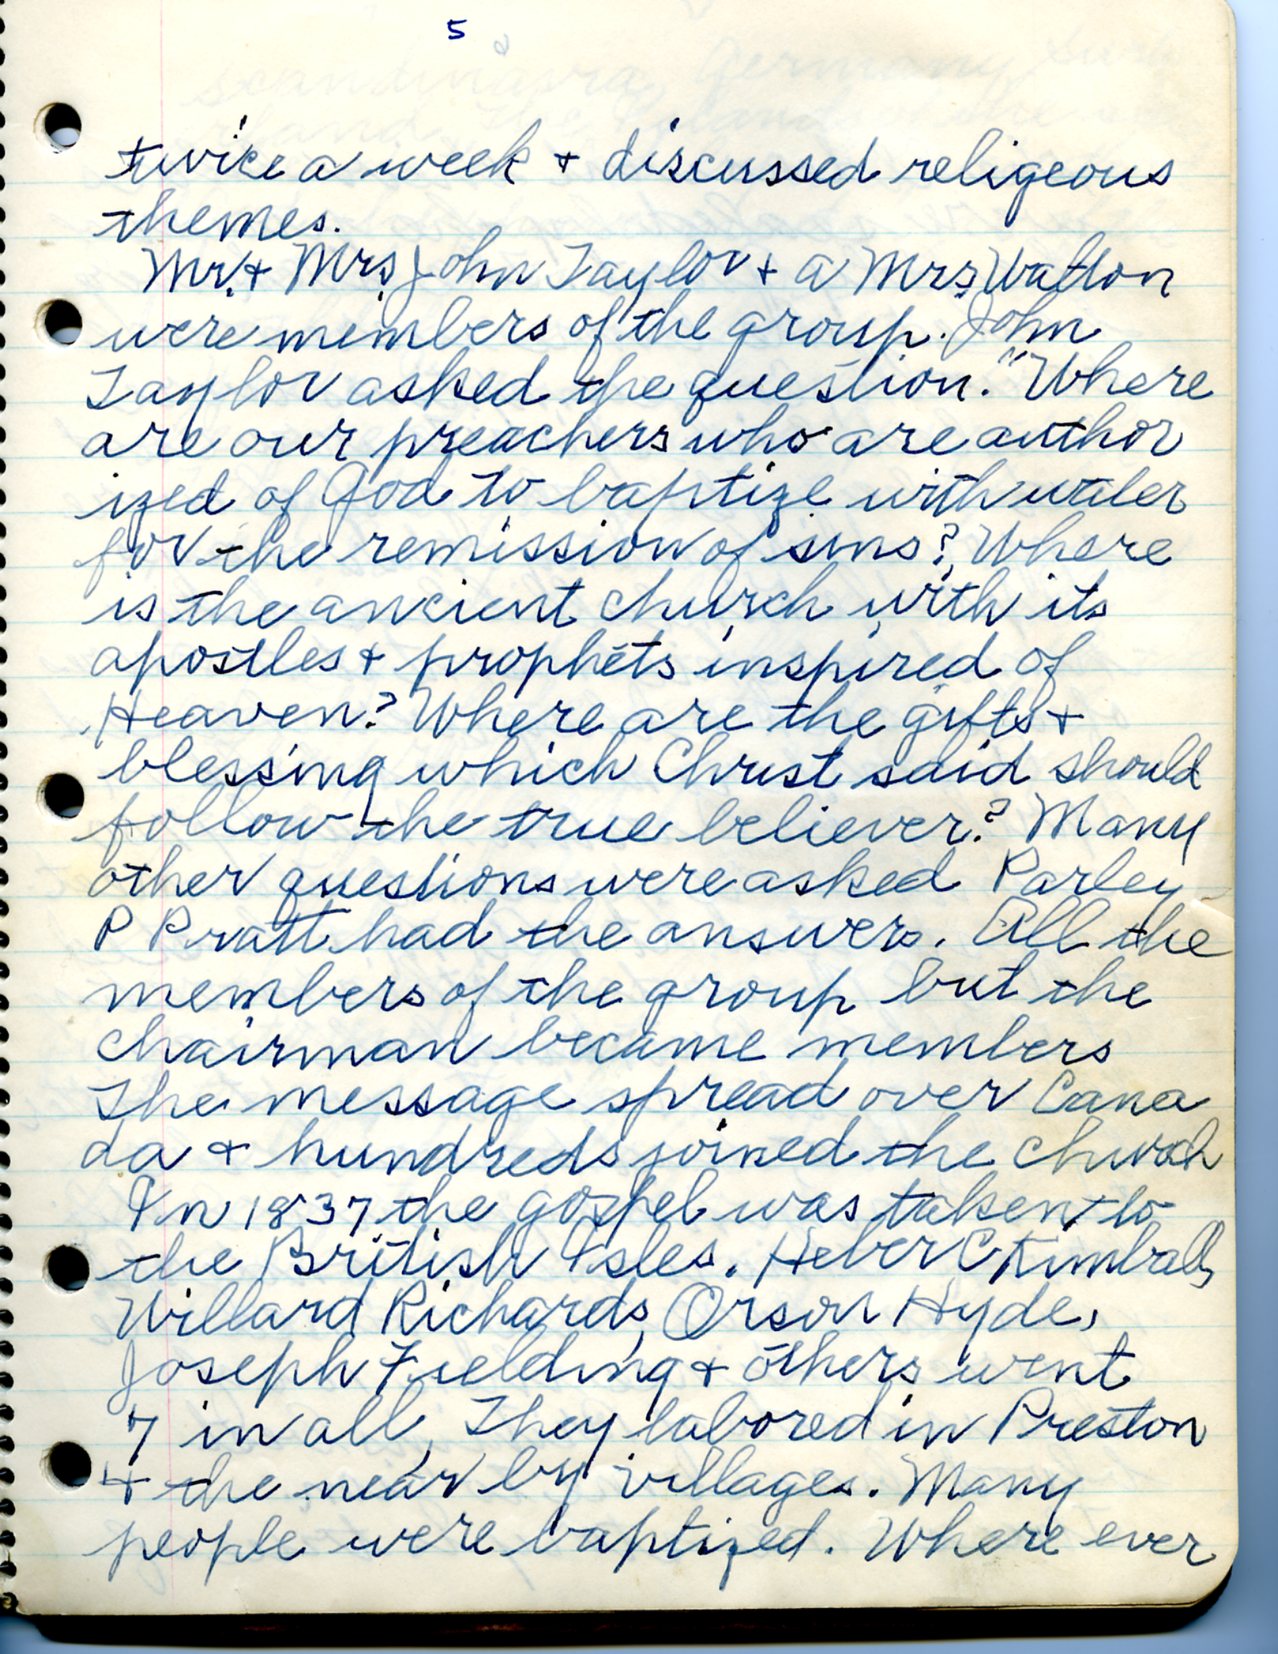 5
twice a week + discussed religeous
themes.
Mr. + Mrs. John Taylor + a Mrs. Walton
were members of the group. John
Taylor asked the question. "Where
are our preachers who are author
ized of God to baptize with water
for the remission of sins? Where
is the ancient church with its
apostles + prophets inspired of
Heaven? Where are the gifts +
blessing which Christ said should
follow the true believer? Many
other questions were asked Parley
P Pratt had the answers. All the
members of the group but the
chairman became members
The message spread over Cana
da + hundreds joined the church
In 1837 the gospel was taken to
the British Isles. Heber C Kimball,
Willard Richards, Orson Hyde,
Joseph Fielding + others went
7 in all, They labored in Preston
+ the near by villages. Many
people were baptized. Where ever